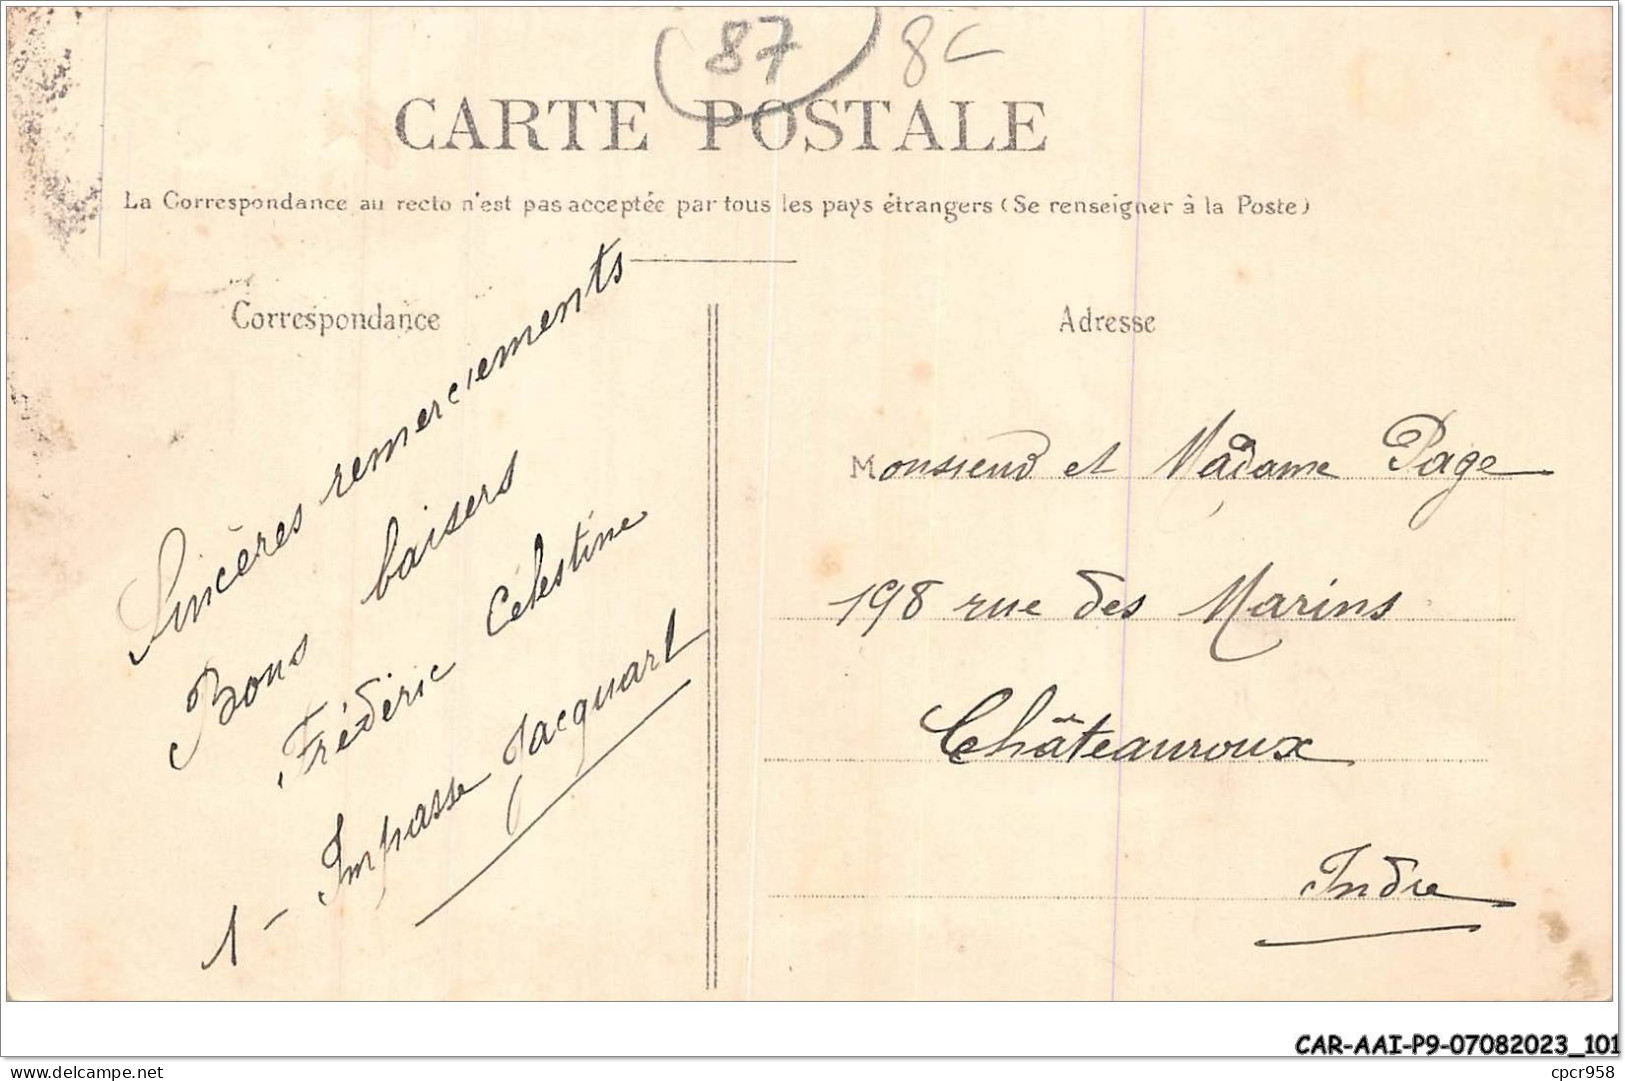 87
8
CARTE POSTALE
La Correspondance au recto n'est pas acceptée par tous les pays étrangers (Se renseigner à la Poste)
Correspondance
Sincères remerciements
Bons baisers
Frédéric Célestine
1 - Impasse Jacquart
Adresse
Monsieur et Madame Page
198 rue des Marins
Châteauroux
Indre
CAR-AAI-P9-07082023_101
https://www.delcampe.net
cpcr958